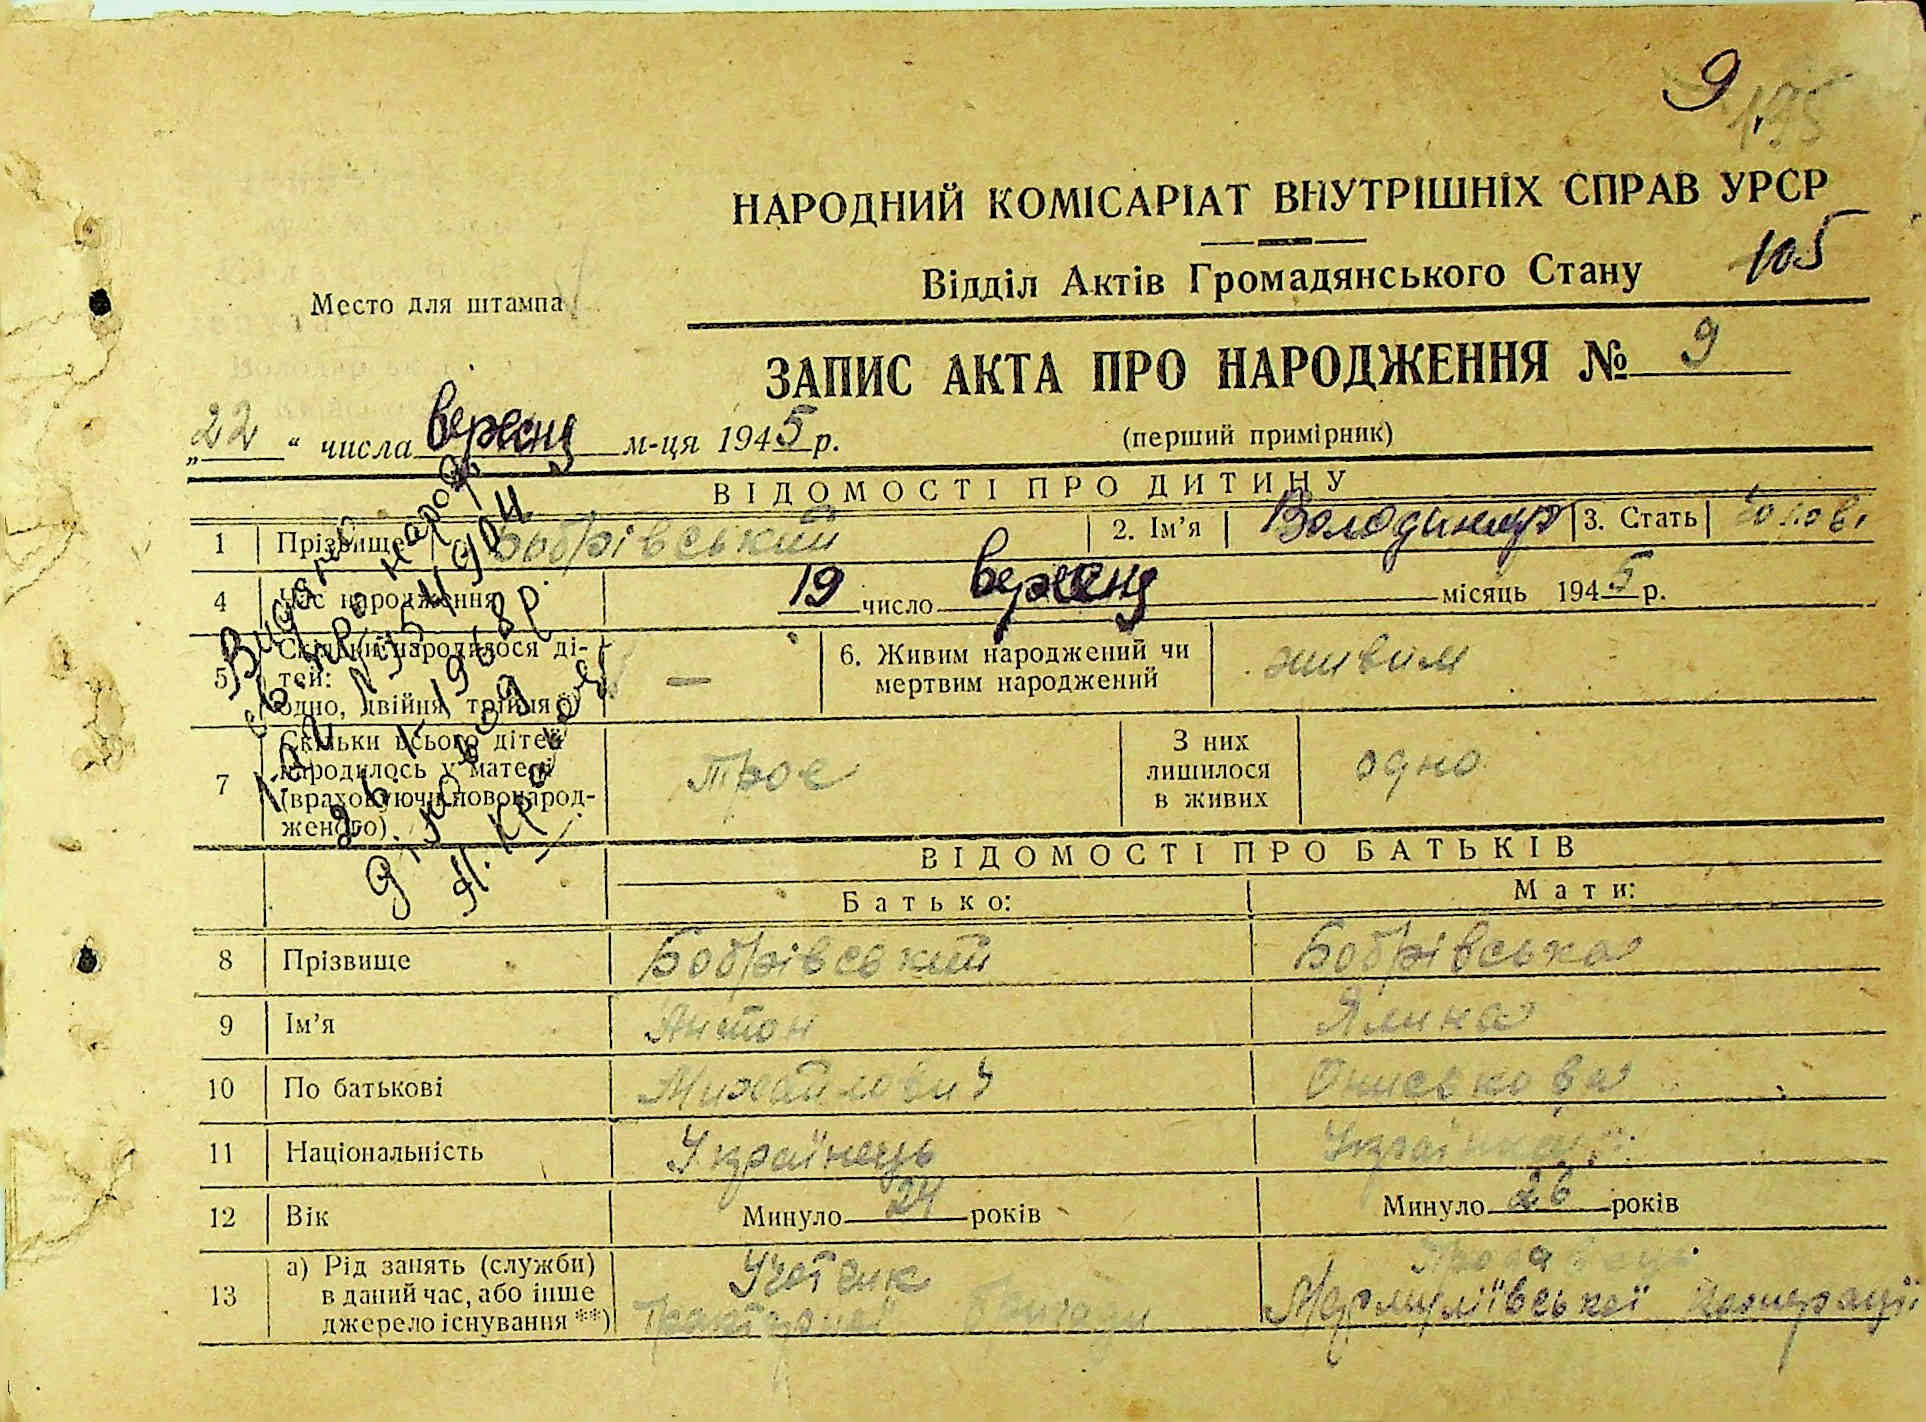 9
195
НАРОДНИЙ КОМІСАРІАТ ВНУТРІШНІХ СПРАВ УРСР
Відділ Актів Громадянського Стану
105
Место для штампа
ЗАПИС АКТА ПРО НАРОДЖЕННЯ № 9
„22“ числа вересня м-ця 1945 р.
(перший примірник)
ВІДОМОСТІ ПРО ДИТИНУ
1 Прізвище Бобрівський 2. Ім’я Володимир 3. Стать Чолові
4 Час народження 19 число вересня місяць 1945 р.
5 Скільки народилося дітей: одно, двійня, трійня *) — 6. Живим народжений чи мертвим народжений живим
7 Скільки всього дітей народилось у матері (враховуючи новонародженого) троє З них лишилося в живих одно
Видано
св. про народ
26.
ВІДОМОСТІ ПРО БАТЬКІВ
Батько: Мати:
8 Прізвище Бобрівський Бобрівська
9 Ім’я Антон Ялина
10 По батькові Михайлович Ониськова
11 Національність Українець Українка
12 Вік Минуло 24 років Минуло 26 років
13 а) Рід занять (служби) в даний час, або інше джерело існування **)
Учотчик
Тракторної бригади
Продавець
кооперації